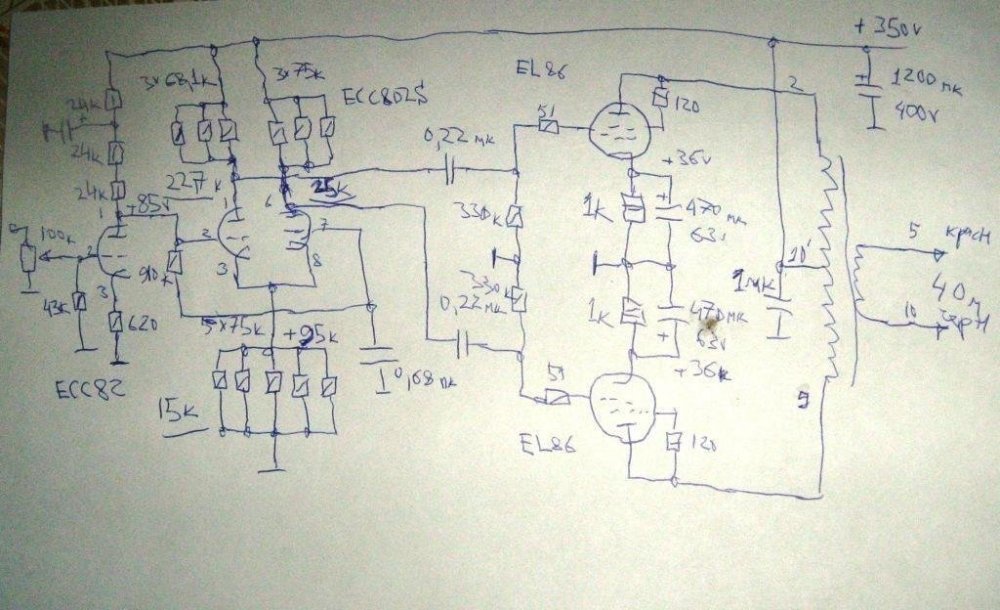 +350v
EL86
2
3×68,1k
3×75k
ECC802S
120
1200 мк
400v
24k
24k
51
0,22 мк
+36v
227 k
24k
1
6
25k
1
+85v
330k
1k
470 мк
63v
7
5
красн
100k
2
2
10
4 Ом
910k
3
8
330k
1 мк
3
43k
620
0,22 мк
1k
470 мк
63v
10
черн
5×75k
+95k
+36k
0,68 мк
51
ECC82
15k
9
EL86
120